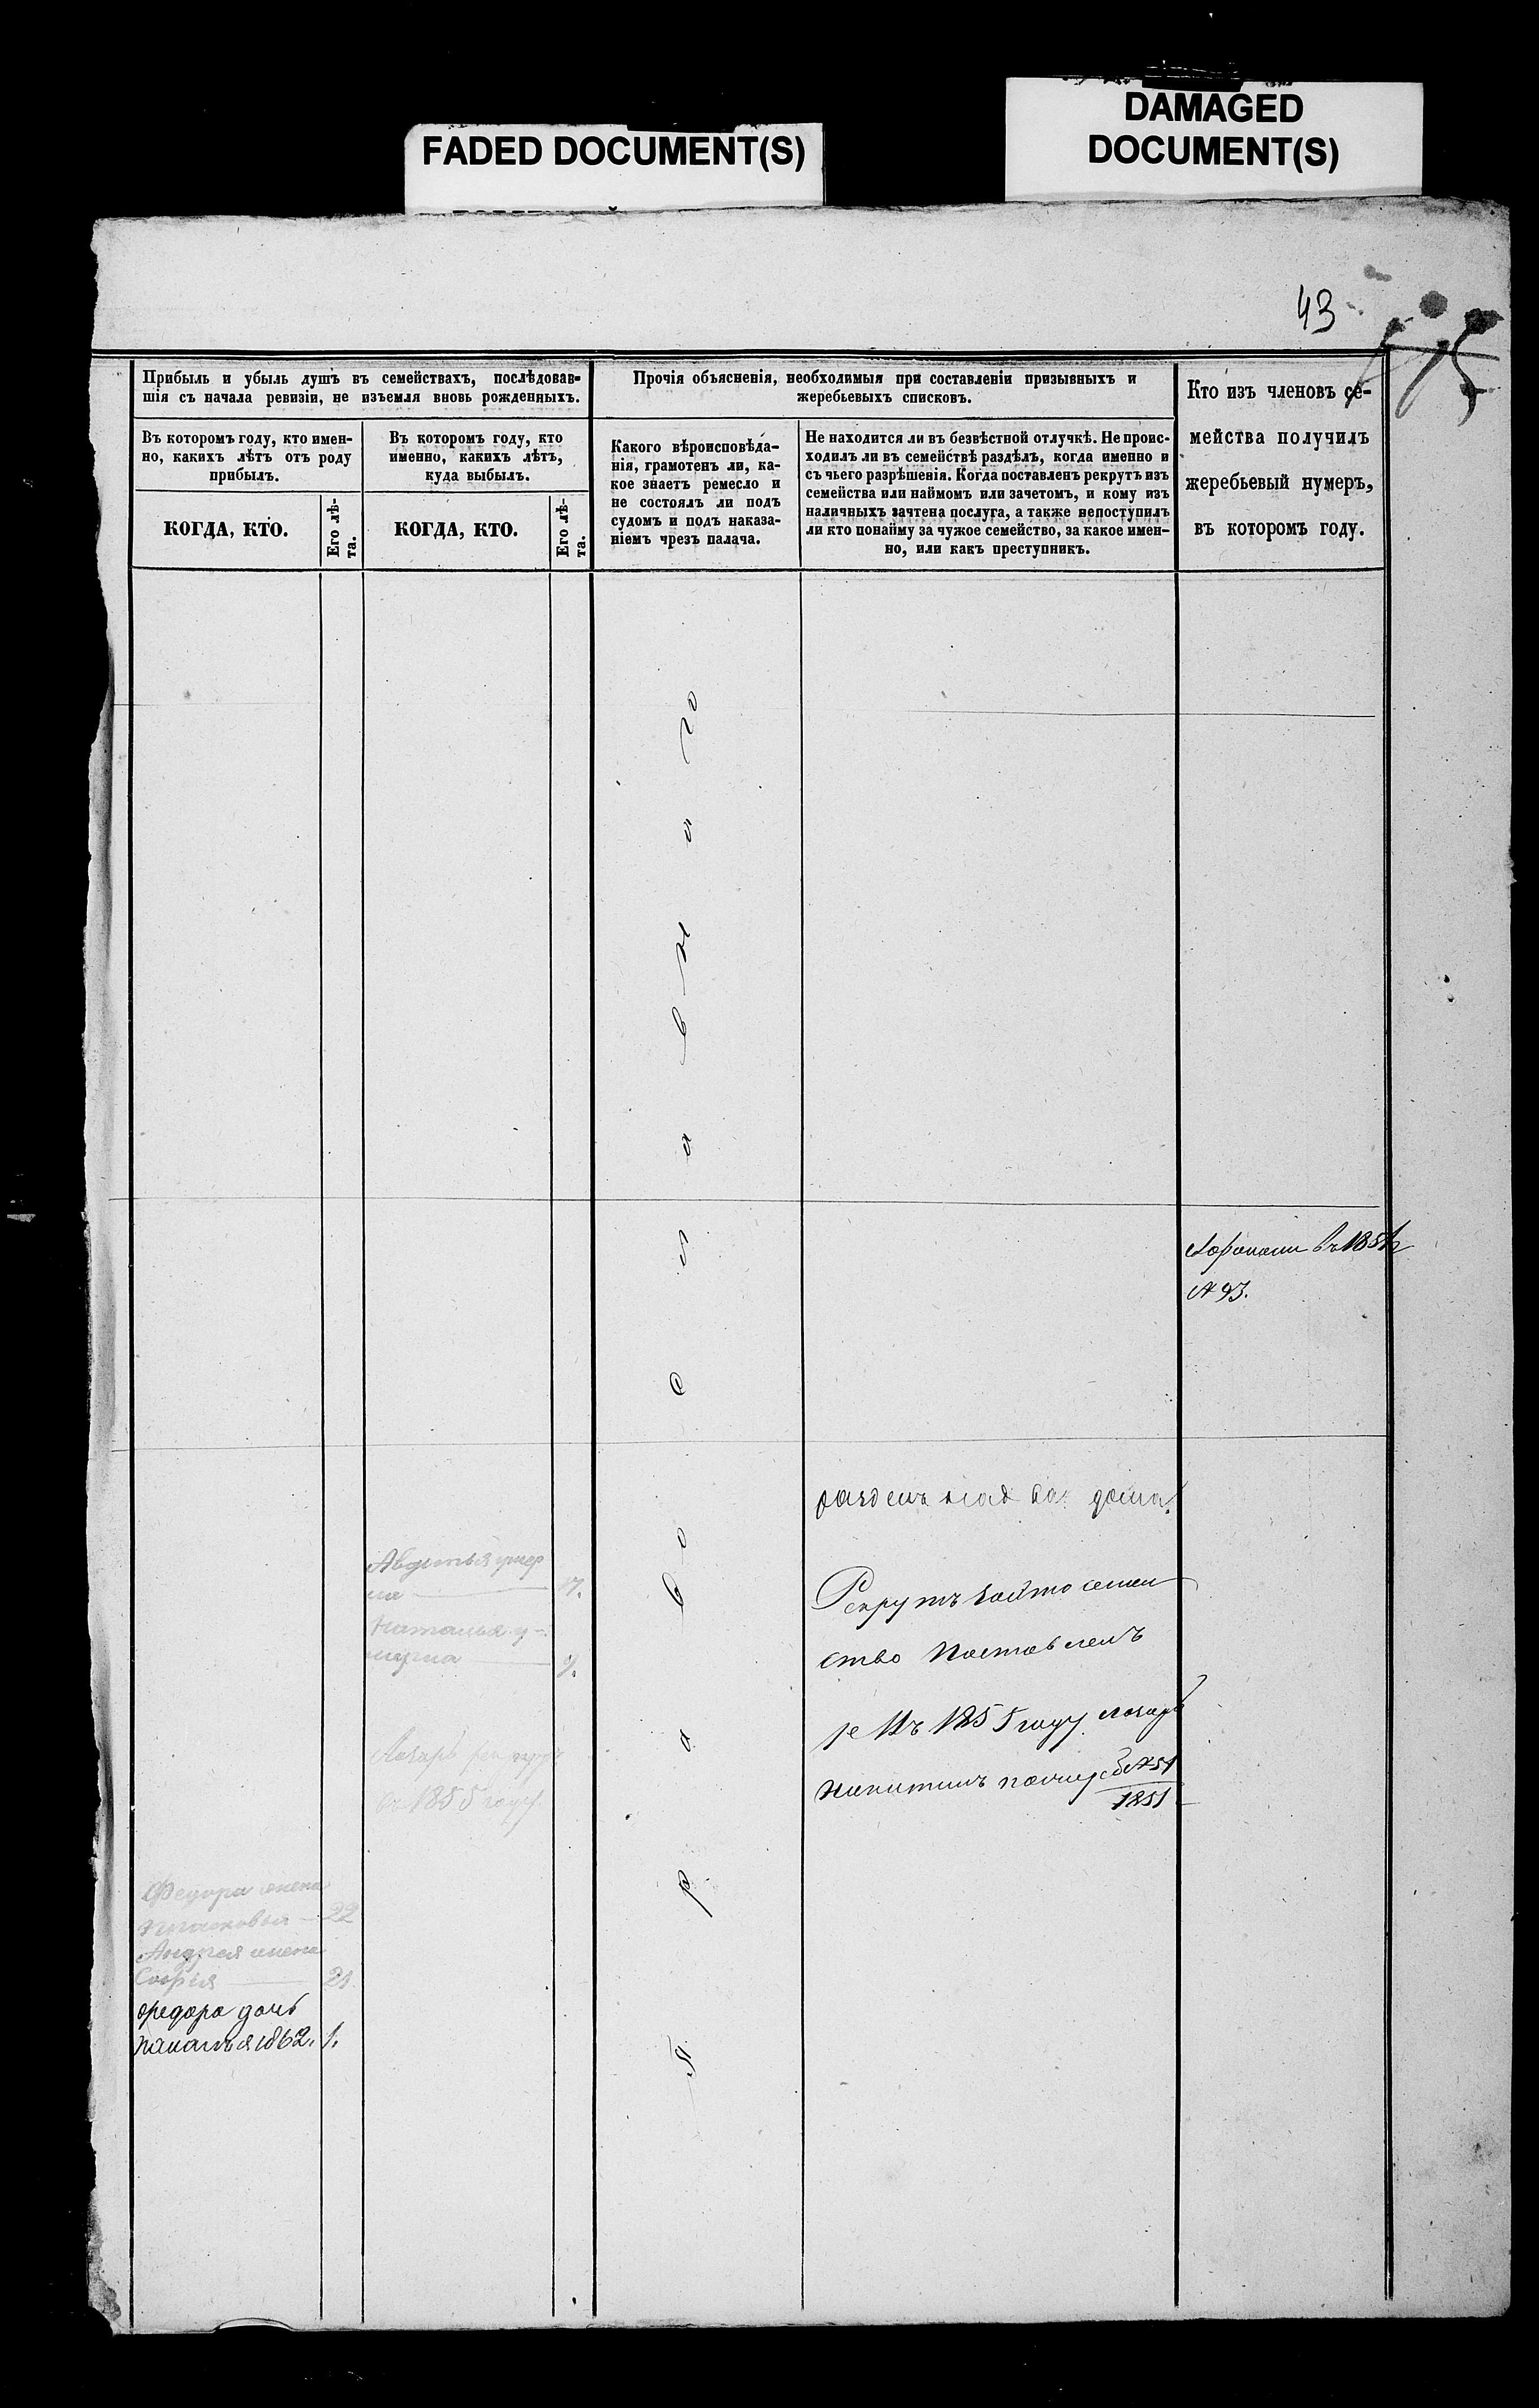 FADED DOCUMENT(S)
DAMAGED
DOCUMENT(S)
43
Прибыль и убыль душъ въ семействахъ, послѣдовав-
шія съ начала ревизіи, не изъемля вновь рожденныхъ.
Въ которомъ году, кто имен-
но, какихъ лѣтъ отъ роду
прибылъ.
КОГДА, КТО.
Его лѣ-
та.
Въ которомъ году, кто
именно, какихъ лѣтъ,
куда выбылъ.
КОГДА, КТО.
Его лѣ-
та.
Прочія объясненія, необходимыя при составленіи призывныхъ и
жеребьевыхъ списковъ.
Какого вѣроисповѣда-
нія, грамотенъ ли, ка-
кое знаетъ ремесло и
не состоялъ ли подъ
судомъ и подъ наказа-
ніемъ чрезъ палача.
Не находится ли въ безвѣстной отлучкѣ. Не проис-
ходилъ ли въ семействѣ раздѣлъ, когда именно и
съ чьего разрѣшенія. Когда поставленъ рекрутъ изъ
семейства или наймомъ или зачетомъ, и кому изъ
наличныхъ зачтена послуга, а также непоступилъ
ли кто понайму за чужое семейство, за какое имен-
но, или какъ преступникъ.
Кто изъ членовъ се-
мейства получилъ
жеребьевый нумеръ,
въ которомъ году.
Православнаго
въ 185
№ 93.
дома
Рекрутъ
ство поставленъ
въ 1855 году Лазарь
Никитинъ № 51
1851
Авдотья умер
ла 7.
Наталья у-
мерла 9.
Лазарь рекрутъ
въ 1855 году
Федора жена
22
Андрея жена
Софія 21
Федора дочь
1862. 1.